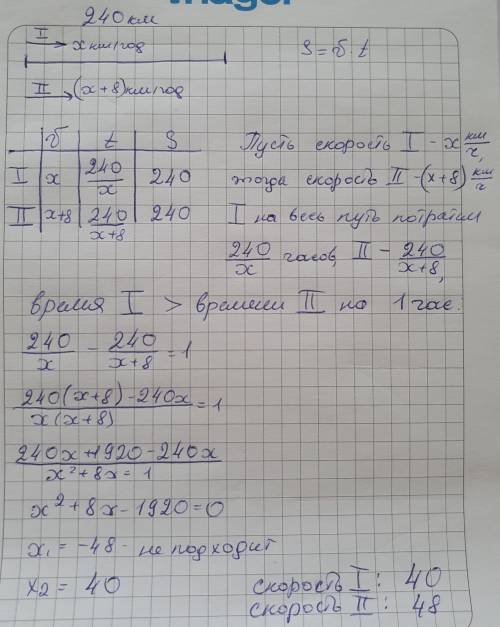 240 км
I
x км/год
S = v · t
II (x+8) км/год
v t S
I x 240/x 240
II x+8 240/(x+8) 240
Пусть скорость I - x км/ч,
тогда скорость II - (x+8) км/ч
I на весь путь потратил
240/x часов, II - 240/(x+8),
время I > времени II на 1 час.
240/x - 240/(x+8) = 1
(240(x+8) - 240x)/(x(x+8)) = 1
240x+1920-240x
x² + 8x = 1
x² + 8x - 1920 = 0
x₁ = -48 - не подходит
x₂ = 40
скорость I : 40
скорость II : 48